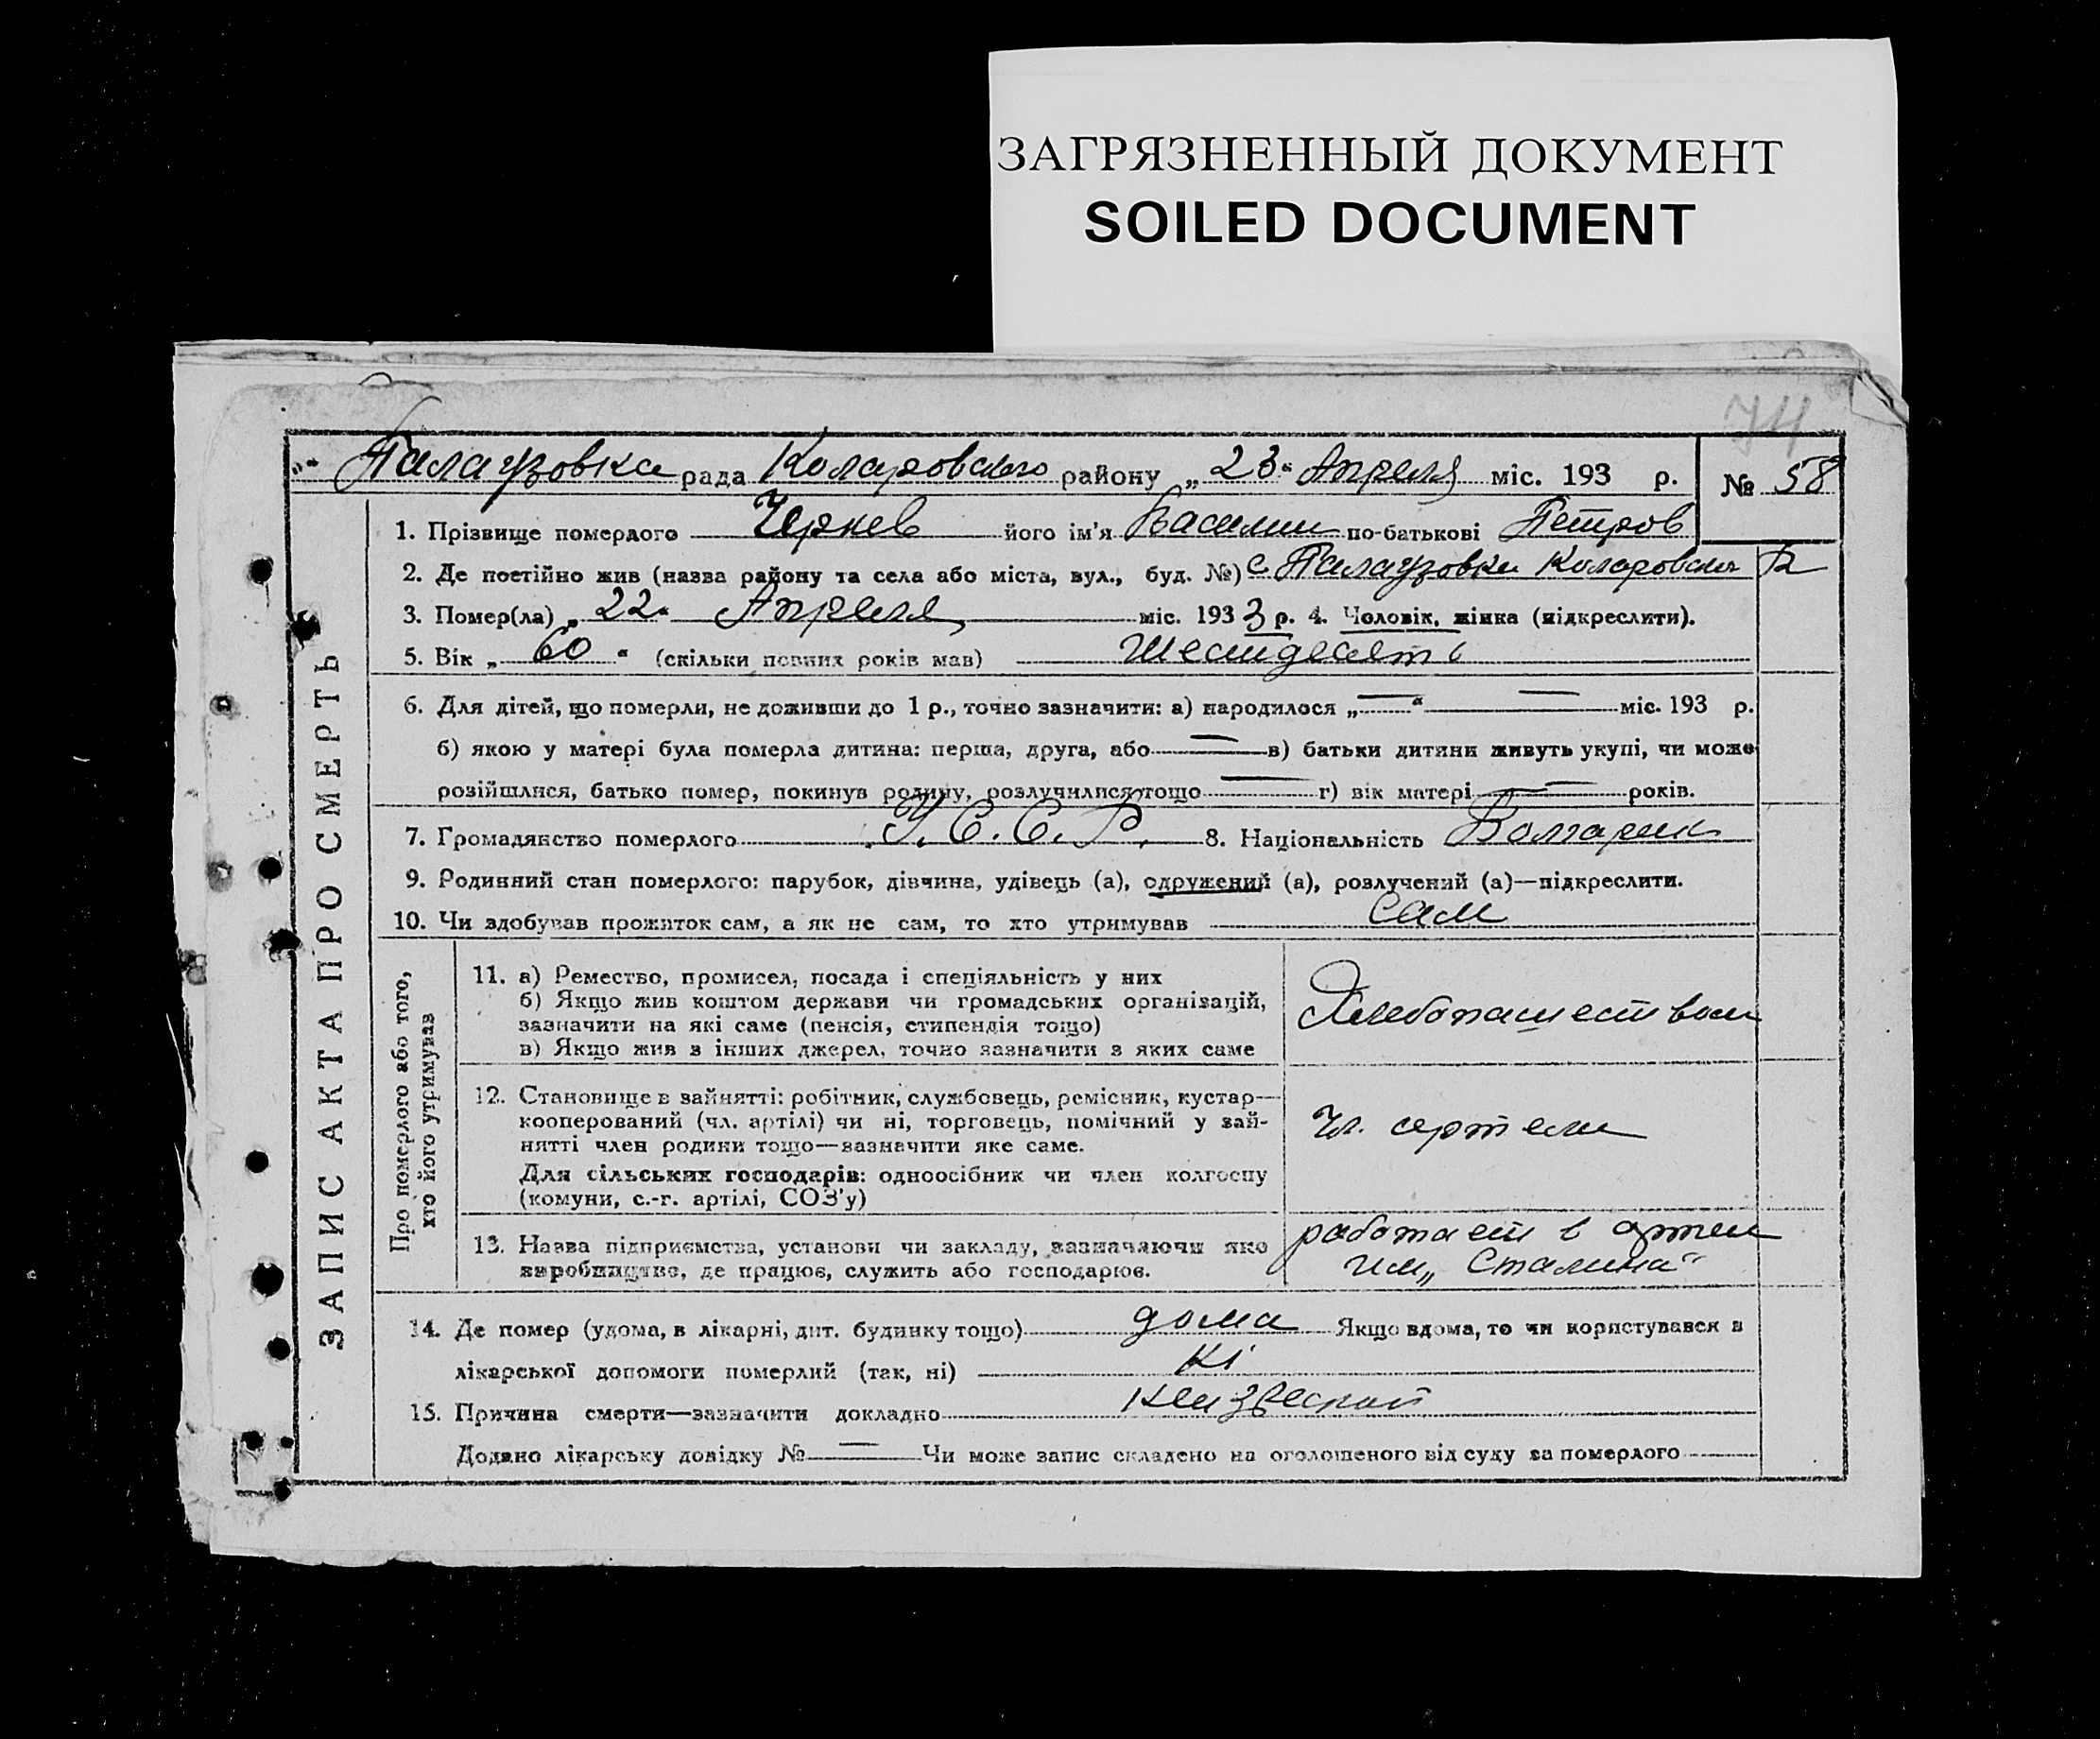 ЗАГРЯЗНЕННЫЙ ДОКУМЕНТ
SOILED DOCUMENT
74
Палаузовка рада Коларовского району „23“ Апреля міс. 193 р. № 58
ЗАПИС АКТА ПРО СМЕРТЬ
1. Прізвище померлого Чернев його ім'я Василий по-батькові Петров
2. Де постійно жив (назва району та села або міста, вул., буд. №) с Палаузовки Коларовского р
3. Помер(ла) „22“ Апреля міс. 1933 р. 4. Чоловік, жінка (підкреслити).
5. Вік „60“ (скільки повних років мав) Шестдесять
6. Для дітей, що померли, не доживши до 1 р., точно зазначити: а) народилося „—“ — міс. 193 р.
б) якою у матері була померла дитина: перша, друга, або — в) батьки дитини живуть укупі, чи може
розійшлися, батько помер, покинув родину, розлучилися тощо — г) вік матері — років.
7. Громадянство померлого У.С.С.Р. 8. Національність Болгарин
9. Родинний стан померлого: парубок, дівчина, удівець (а), одружений (а), розлучений (а)—підкреслити.
10. Чи здобував прожиток сам, а як не сам, то хто утримував сам
Про померлого або того,
хто його утримував
11. а) Ремество, промисел, посада і спеціяльність у них
б) Якщо жив коштом держави чи громадських організацій,
зазначити на які саме (пенсія, стипендія тощо)
в) Якщо жив з інших джерел, точно зазначити з яких саме
Хлебопашеством
12. Становище в зайнятті: робітник, службовець, ремісник, кустар—
кооперований (чл. артілі) чи ні, торговець, помічний у зай-
нятті член родини тощо—зазначити яке саме.
Для сільських господарів: одноосібник чи член колгоспу
(комуни, с.-г. артілі, СОЗ'у)
Чл. артели
13. Назва підприємства, установи чи закладу, зазначаючи яке
виробництво, де працює, служить або господарює.
работает в артели
им „Сталина“
14. Де помер (удома, в лікарні, дит. будинку тощо) дома Якщо вдома, то чи користувався з
лікарської допомоги померлий (так, ні) ні
15. Причина смерти—зазначити докладно неизвесной
Додано лікарську довідку № — Чи може запис складено на оголошеного від суду за померлого